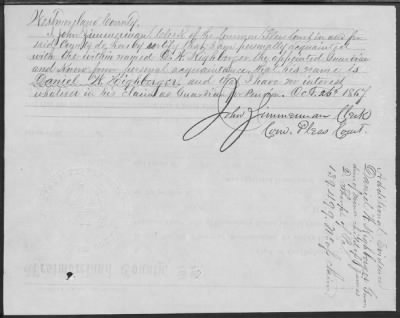 Westmoreland County.
I John Zimmerman Clerk of the Common Pleas Court in and for
said County do hereby certify that I am personally acquainted
with the within named D. H. Highberger the appointed Guardian
and know from personal acquaintance that his name is
Daniel H. Highberger, and that I have no interest
whatever in his claim as Guardian for Pension. Oct. 26th 1867
John Zimmerman Clerk
Com. Pleas Court.
Additional Evidence
Daniel H. Highberger Guar
dian of minor
D.
139499
Westmoreland County, SS